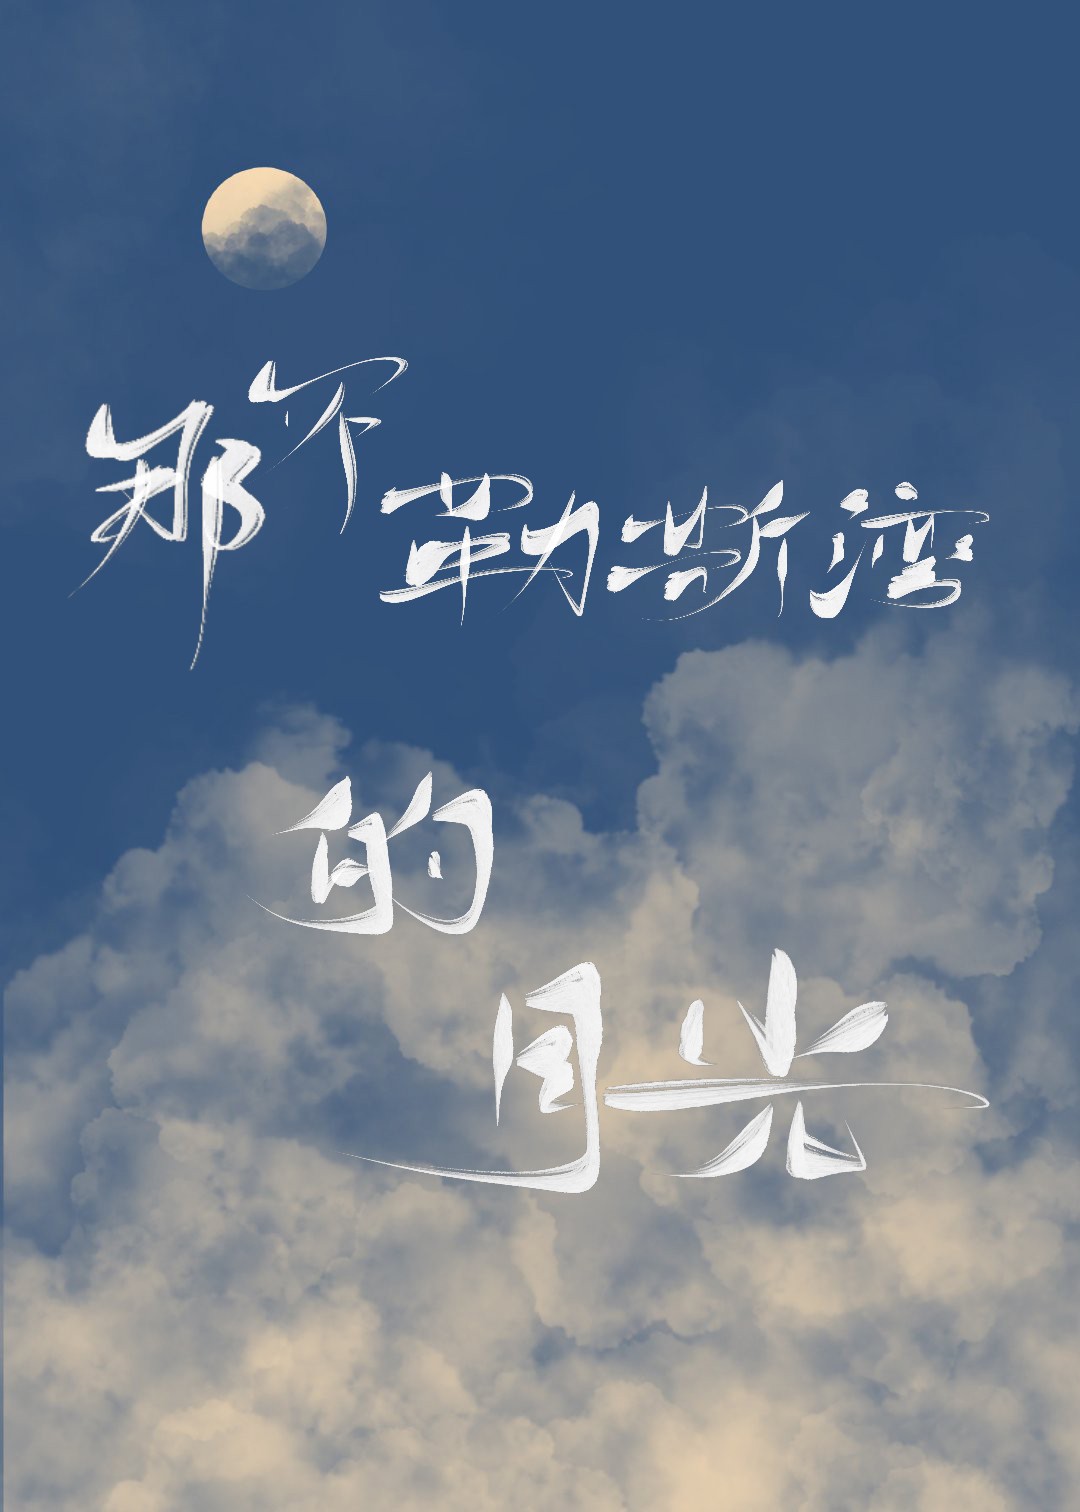 那不勒斯湾
的
月光